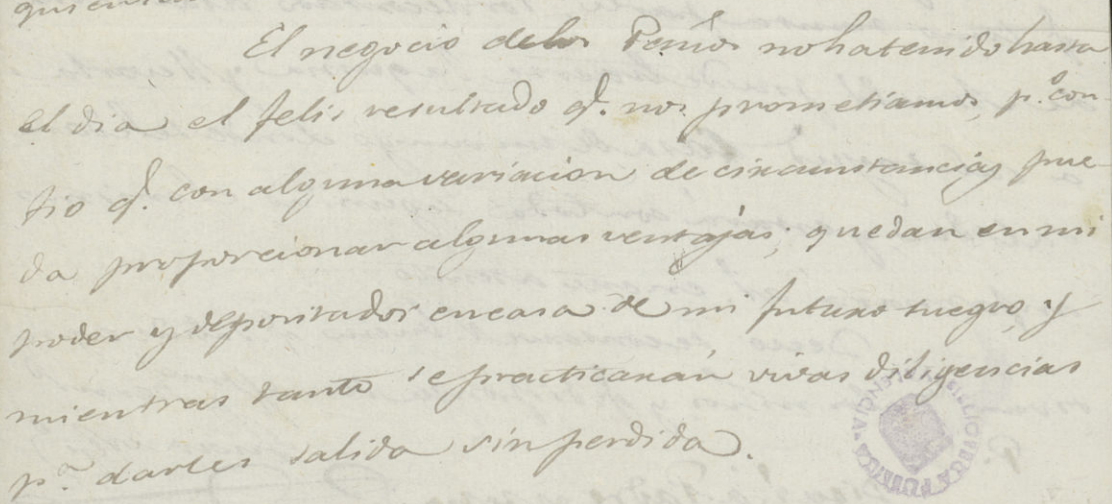 El negocio delos Pesos no ha tenido hasta
el dia el felis resultado q.e nos prometiamos, p.o con
fio q.e con alguna variacion de circunstancias pue
da proporcionar algunas ventajas; quedan en mi
poder y depositados en casa de mi futuro suegro, y
mientras tanto se practicarán vivas diligencias
p.a darles salida sin perdida.
BIBLIOTECA PUBLICA